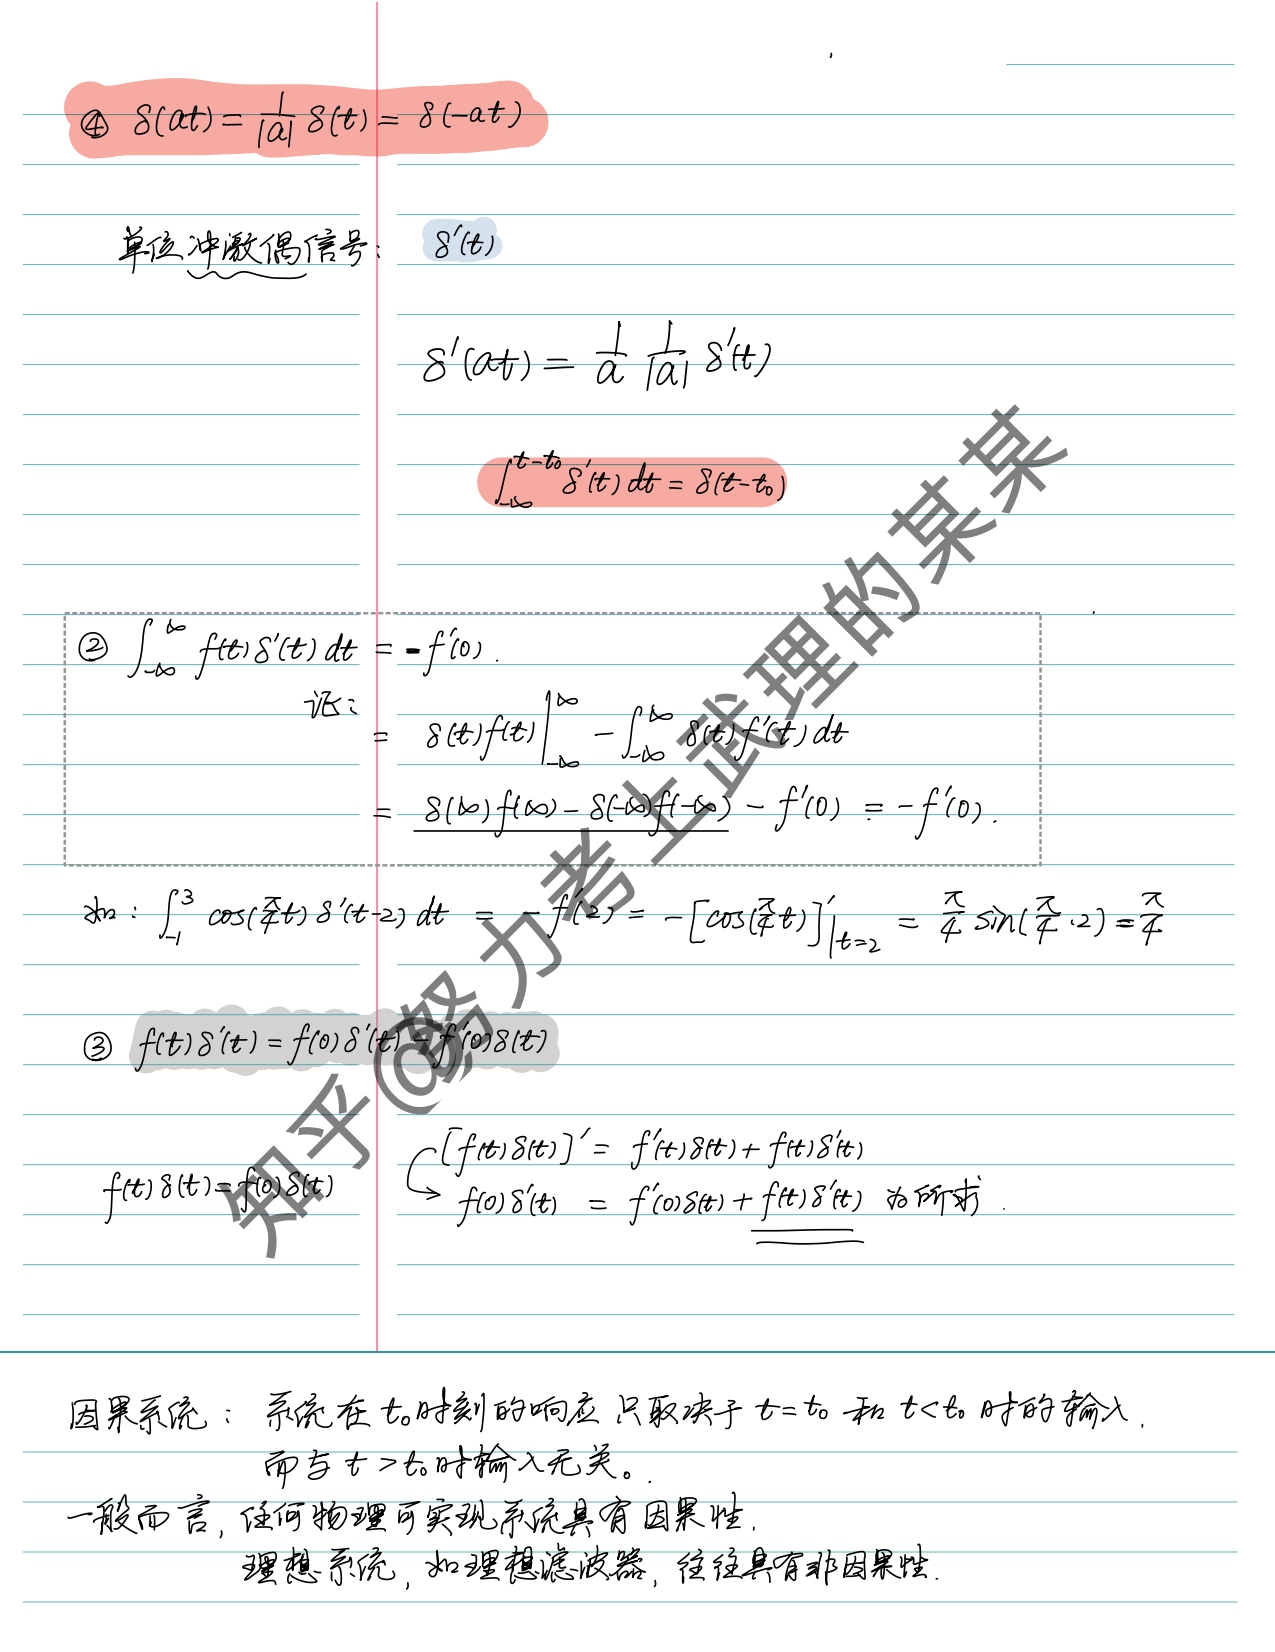 ④ δ(at) = 1/|a| δ(t) = δ(-at)
单位冲激偶信号: δ'(t)
δ'(at) = 1/a 1/|a| δ'(t)
∫_{-∞}^{t-t₀} δ'(t) dt = δ(t-t₀)
② ∫_{-∞}^{∞} f(t) δ'(t) dt = -f'(0).
证:
= δ(t)f(t)|_{-∞}^{∞} - ∫_{-∞}^{∞} δ(t) f'(t) dt
= δ(∞)f(∞) - δ(-∞)f(-∞) - f'(0) = -f'(0).
如: ∫_{-1}^{3} cos(π/4 t) δ'(t-2) dt = -f'(2) = -[cos(π/4 t)]'|_{t=2} = π/4 sin(π/4 · 2) = π/4
③ f(t) δ'(t) = f(0) δ'(t) - f'(0) δ(t)
[f(t) δ(t)]' = f'(t) δ(t) + f(t) δ'(t)
f(t) δ(t) = f(0) δ(t)
f(0) δ'(t) = f'(0) δ(t) + f(t) δ'(t) 为所求.
因果系统: 系统在 t₀时刻的响应只取决于 t=t₀ 和 t<t₀ 时的输入,
而与 t>t₀时输入无关。
一般而言, 任何物理可实现系统具有因果性.
理想系统, 如理想滤波器, 往往具有非因果性.
知乎@努力考上武理的某某